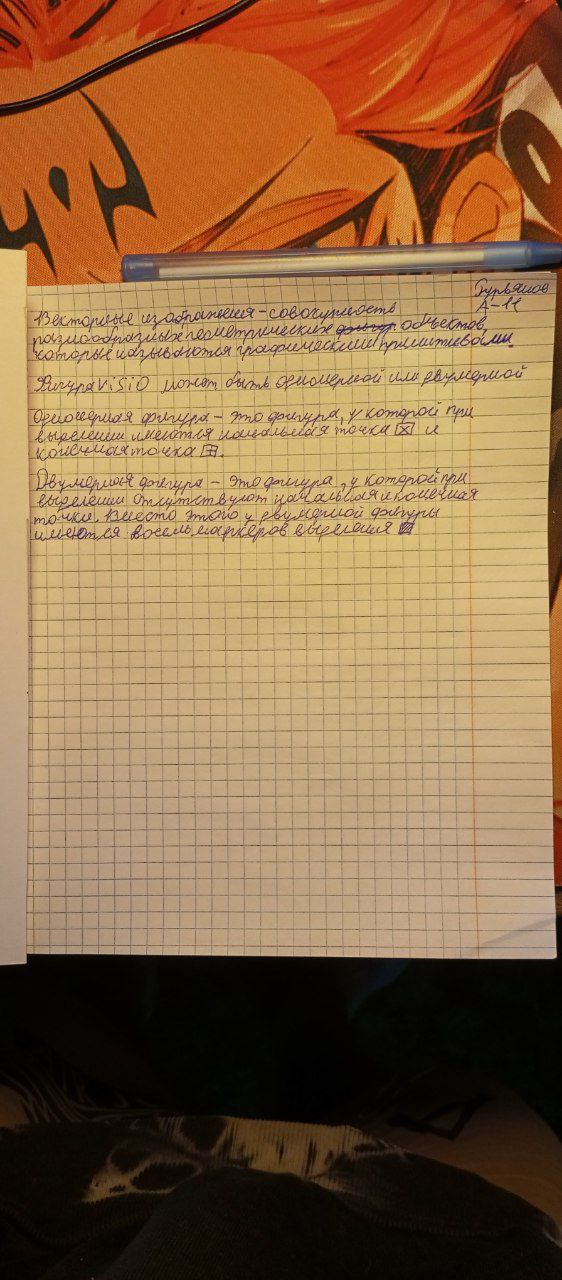 Гурьянов
А-11
Векторные изображения - совокупность
разнообразных геометрических объектов,
которые называются графическими примитивами.
Фигура ViSiO может быть одномерной или двумерной
Одномерная фигура - это фигура, у которой при
выделении имеются начальная точка и
конечная точка.
Двумерная фигура - это фигура, у которой при
выделении отсутствуют начальная и конечная
точки. Вместо этого у двумерной фигуры
имеются восемь маркеров выделения